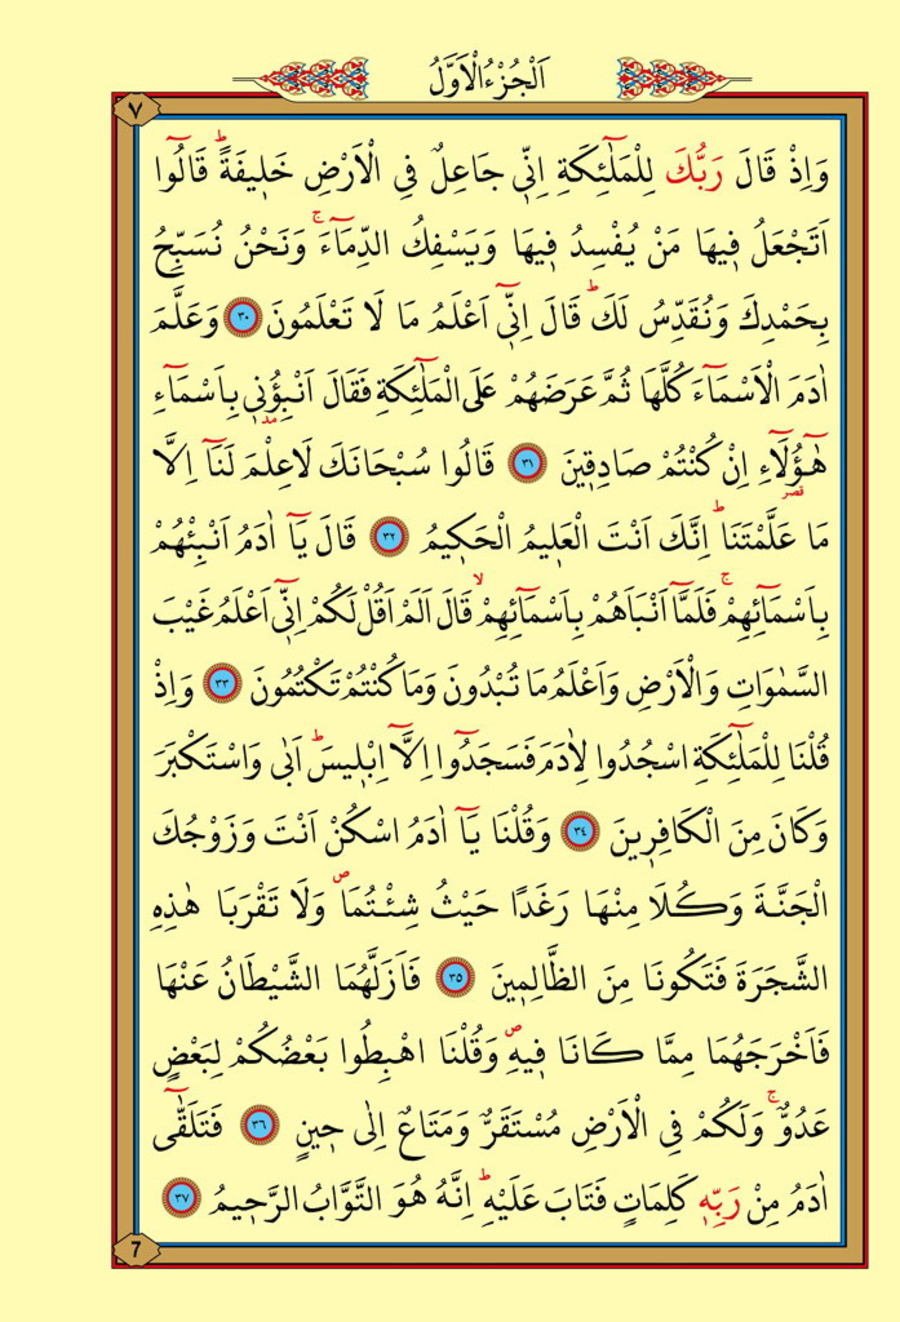 اَلْجُزْءُ الْاَوَّلُ
٧
وَاِذْ قَالَ رَبُّكَ لِلْمَلٰٓئِكَةِ اِنّٖي جَاعِلٌ فِي الْاَرْضِ خَلٖيفَةًؕ قَالُٓوا
اَتَجْعَلُ فٖيهَا مَنْ يُفْسِدُ فٖيهَا وَيَسْفِكُ الدِّمَٓاءَۚ وَنَحْنُ نُسَبِّحُ
بِحَمْدِكَ وَنُقَدِّسُ لَكَؕ قَالَ اِنّٖٓي اَعْلَمُ مَا لَا تَعْلَمُونَ ﴿٣٠﴾ وَعَلَّمَ
اٰدَمَ الْاَسْمَٓاءَ كُلَّهَا ثُمَّ عَرَضَهُمْ عَلَى الْمَلٰٓئِكَةِ فَقَالَ اَنْبِؤُنٖي بِاَسْمَٓاءِ
مد
هٰٓؤُ۬لَٓاءِ اِنْ كُنْتُمْ صَادِقٖينَ ﴿٣١﴾ قَالُوا سُبْحَانَكَ لَا عِلْمَ لَنَٓا اِلَّا
قصر
مَا عَلَّمْتَنَاؕ اِنَّكَ اَنْتَ الْعَلٖيمُ الْحَكٖيمُ ﴿٣٢﴾ قَالَ يَٓا اٰدَمُ اَنْبِئْهُمْ
بِاَسْمَٓائِهِمْۚ فَلَمَّٓا اَنْبَاَهُمْ بِاَسْمَٓائِهِمْۙ قَالَ اَلَمْ اَقُلْ لَكُمْ اِنّٖٓي اَعْلَمُ غَيْبَ
السَّمٰوَاتِ وَالْاَرْضِ وَاَعْلَمُ مَا تُبْدُونَ وَمَا كُنْتُمْ تَكْتُمُونَ ﴿٣٣﴾ وَاِذْ
قُلْنَا لِلْمَلٰٓئِكَةِ اسْجُدُوا لِاٰدَمَ فَسَجَدُٓوا اِلَّٓا اِبْلٖيسَؕ اَبٰى وَاسْتَكْبَرَ
وَكَانَ مِنَ الْكَافِرٖينَ ﴿٣٤﴾ وَقُلْنَا يَٓا اٰدَمُ اسْكُنْ اَنْتَ وَزَوْجُكَ
الْجَنَّةَ وَكُلَا مِنْهَا رَغَدًا حَيْثُ شِئْتُمَاࣕ وَلَا تَقْرَبَا هٰذِهِ
الشَّجَرَةَ فَتَكُونَا مِنَ الظَّالِمٖينَ ﴿٣٥﴾ فَاَزَلَّهُمَا الشَّيْطَانُ عَنْهَا
فَاَخْرَجَهُمَا مِمَّا كَانَا فٖيهِࣕ وَقُلْنَا اهْبِطُوا بَعْضُكُمْ لِبَعْضٍ
عَدُوٌّۚ وَلَكُمْ فِي الْاَرْضِ مُسْتَقَرٌّ وَمَتَاعٌ اِلٰى حٖينٍ ﴿٣٦﴾ فَتَلَقّٰٓى
اٰدَمُ مِنْ رَبِّهٖ كَلِمَاتٍ فَتَابَ عَلَيْهِؕ اِنَّهُ هُوَ التَّوَّابُ الرَّحٖيمُ ﴿٣٧﴾
7